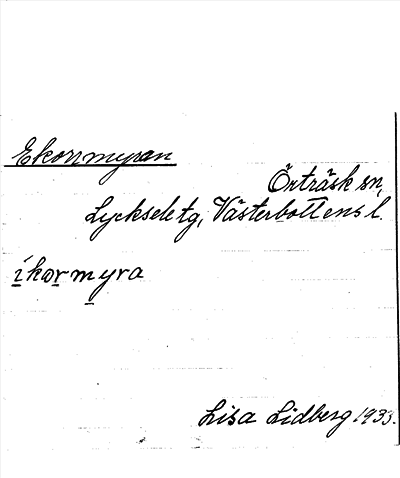 Ekorrmyran
Örträsk sn,
Lycksele tg, Västerbottens l.
íkormyra
Lisa Lidberg 1933.